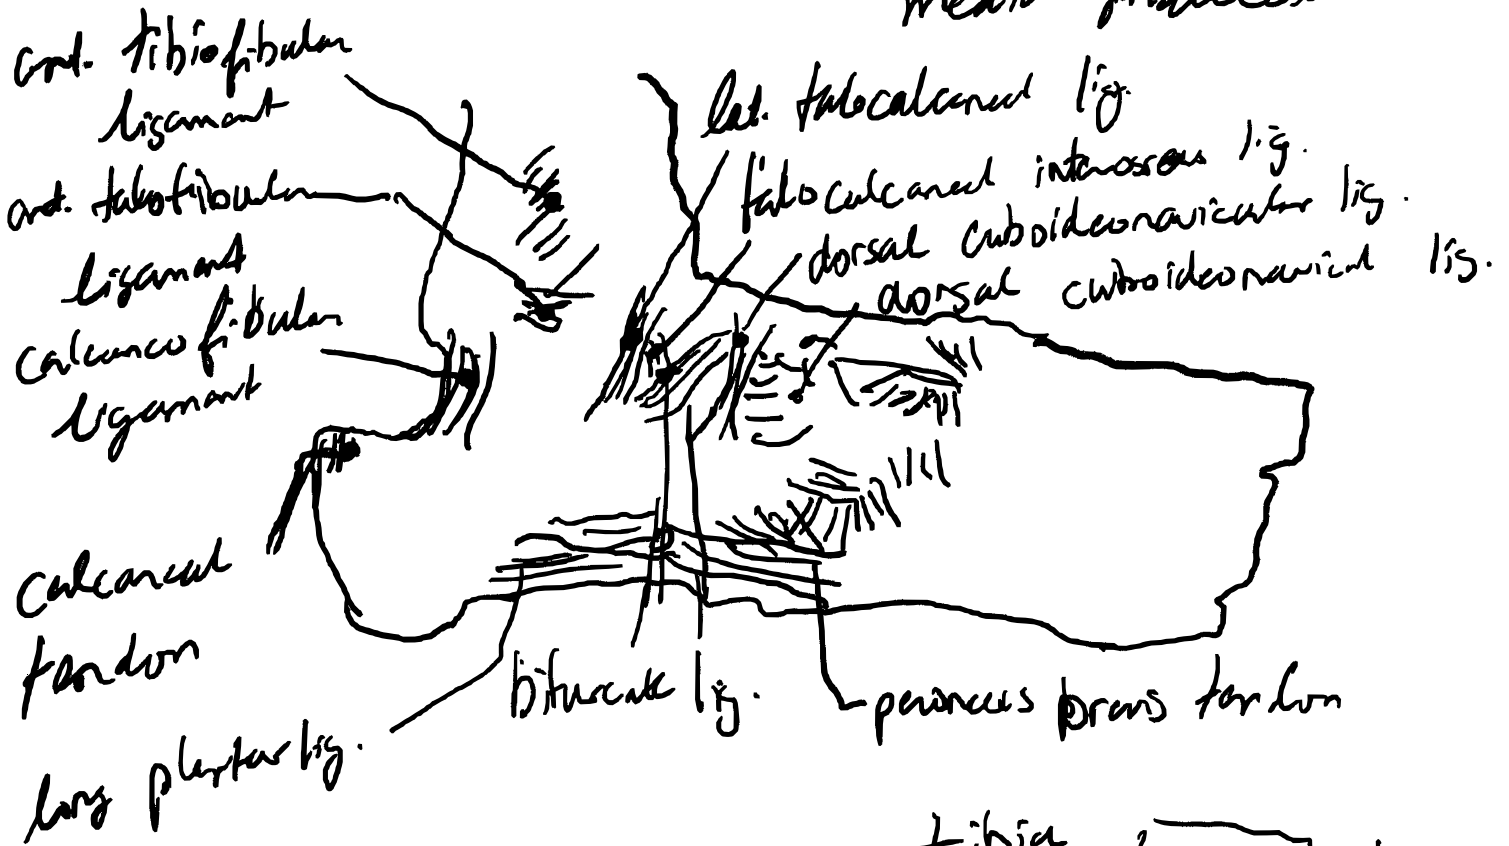 mean
ant. tibiofibular
ligament
ant. talofibular
ligament
calcaneofibular
ligament
calcaneal
tendon
long plantar lig.
lat. talocalcaneal lig.
talocalcaneal interosseous lig.
dorsal cuboideonavicular lig.
dorsal cuboideonavicul lig.
bifurcate lig.
peroneus brevis tendon
tibia